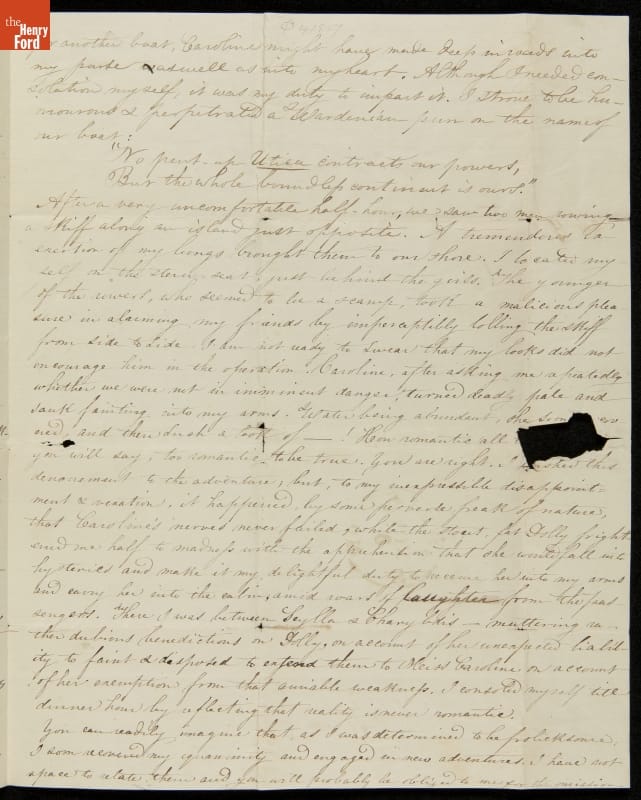 the
Henry
Ford
for another boat, Caroline might have made deep inroads into
my purse as well as into my heart. Although I needed con-
solation myself, it was my duty to impart it. I strove to be hu-
mourous & perpetrated a Wardenian pun on the name of
our boat:
"No pent-up Utica contracts our powers,
But the whole boundless continent is ours."
After a very uncomfortable half-hour, we saw two men rowing
a skiff along an island just opposite. A tremendous ex-
ertion of my lungs brought them to our shore. I located my-
self on the stern-seat just behind the girls. The younger
of the rowers, who seemed to be a scamp, took a malicious plea
sure in alarming my friends by imperceptibly lolling the skiff
from side to side. I am not ready to swear that my looks did not
encourage him in the operation. Caroline, after asking me repeatedly
whether we were not in imminent danger, turned deadly pale and
sank fainting into my arms. Water being abundant, she soon
and then such a look of — ! How romantic all
you will say, too romantic to be true. You are right. I wished this
denouement to the adventure; but, to my inexpressible disappoint-
ment & vexation, it happened, by some perverse freak of nature,
that Caroline's nerves never failed, while the stout, fat Dolly fright
ened me half to madness with the apprehension that she would fall into
hysterics and make it my delightful duty to receive her into my arms
and convey her into the cabin, amid roars of laughter from the pas
sengers. There I was between Scylla & Charybdis — muttering ra-
ther dubious benedictions on Dolly, on account of her unexpected liabil-
ity to faint & disposed to extend them to Miss Caroline on account
of her exemption from that amiable weakness. I consoled myself till
dinner hour by reflecting that reality is never romantic.
You can readily imagine that, as I was determined to be frolicksome,
I soon recovered my equanimity and engaged in new adventures. I have not
space to relate them and you will probably be obliged to me for the omission